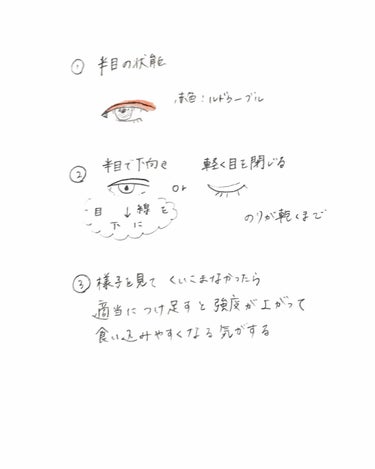 ① 半目の状態
茶色：ルドゥーブル
② 半目で下向き or 軽く目を閉じる
目線を
下に
↓
のりが乾くまで
③ 様子を見て くいこまなかったら
適当につけ足すと強度が上がって
食い込みやすくなる気がする